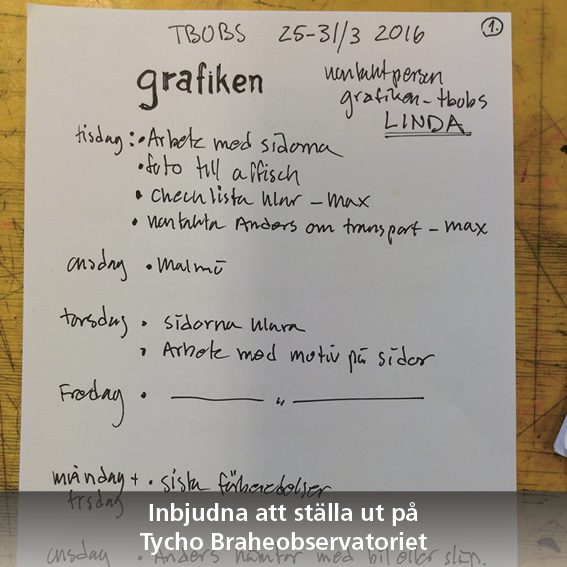 TBOBS 25-31/3 2016 1.
grafiken
kontaktperson
grafiken - tbobs
LINDA
tisdag: • Arbete med sidorna
• foto till affisch
• Checklista klar - max
• kontakta Anders om transport - max
onsdag • Malmö
torsdag • sidorna klara
• Arbete med motiv på sidor
Fredag • — " —
måndag + • sista förberedelser
tisdag
Inbjudna att ställa ut på
Tycho Braheobservatoriet
onsdag • Anders hämtar med bil eller släp.